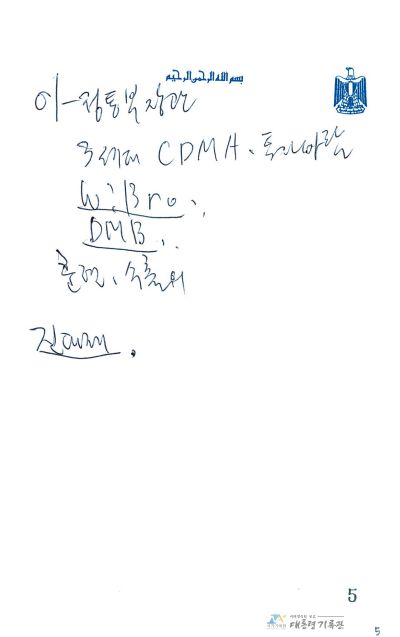 بسم الله الرحمن الرحيم
이-정통부장관
3세대 CDMA、
WiBro、
DMB、
진대제.
5
대통령기록관
5